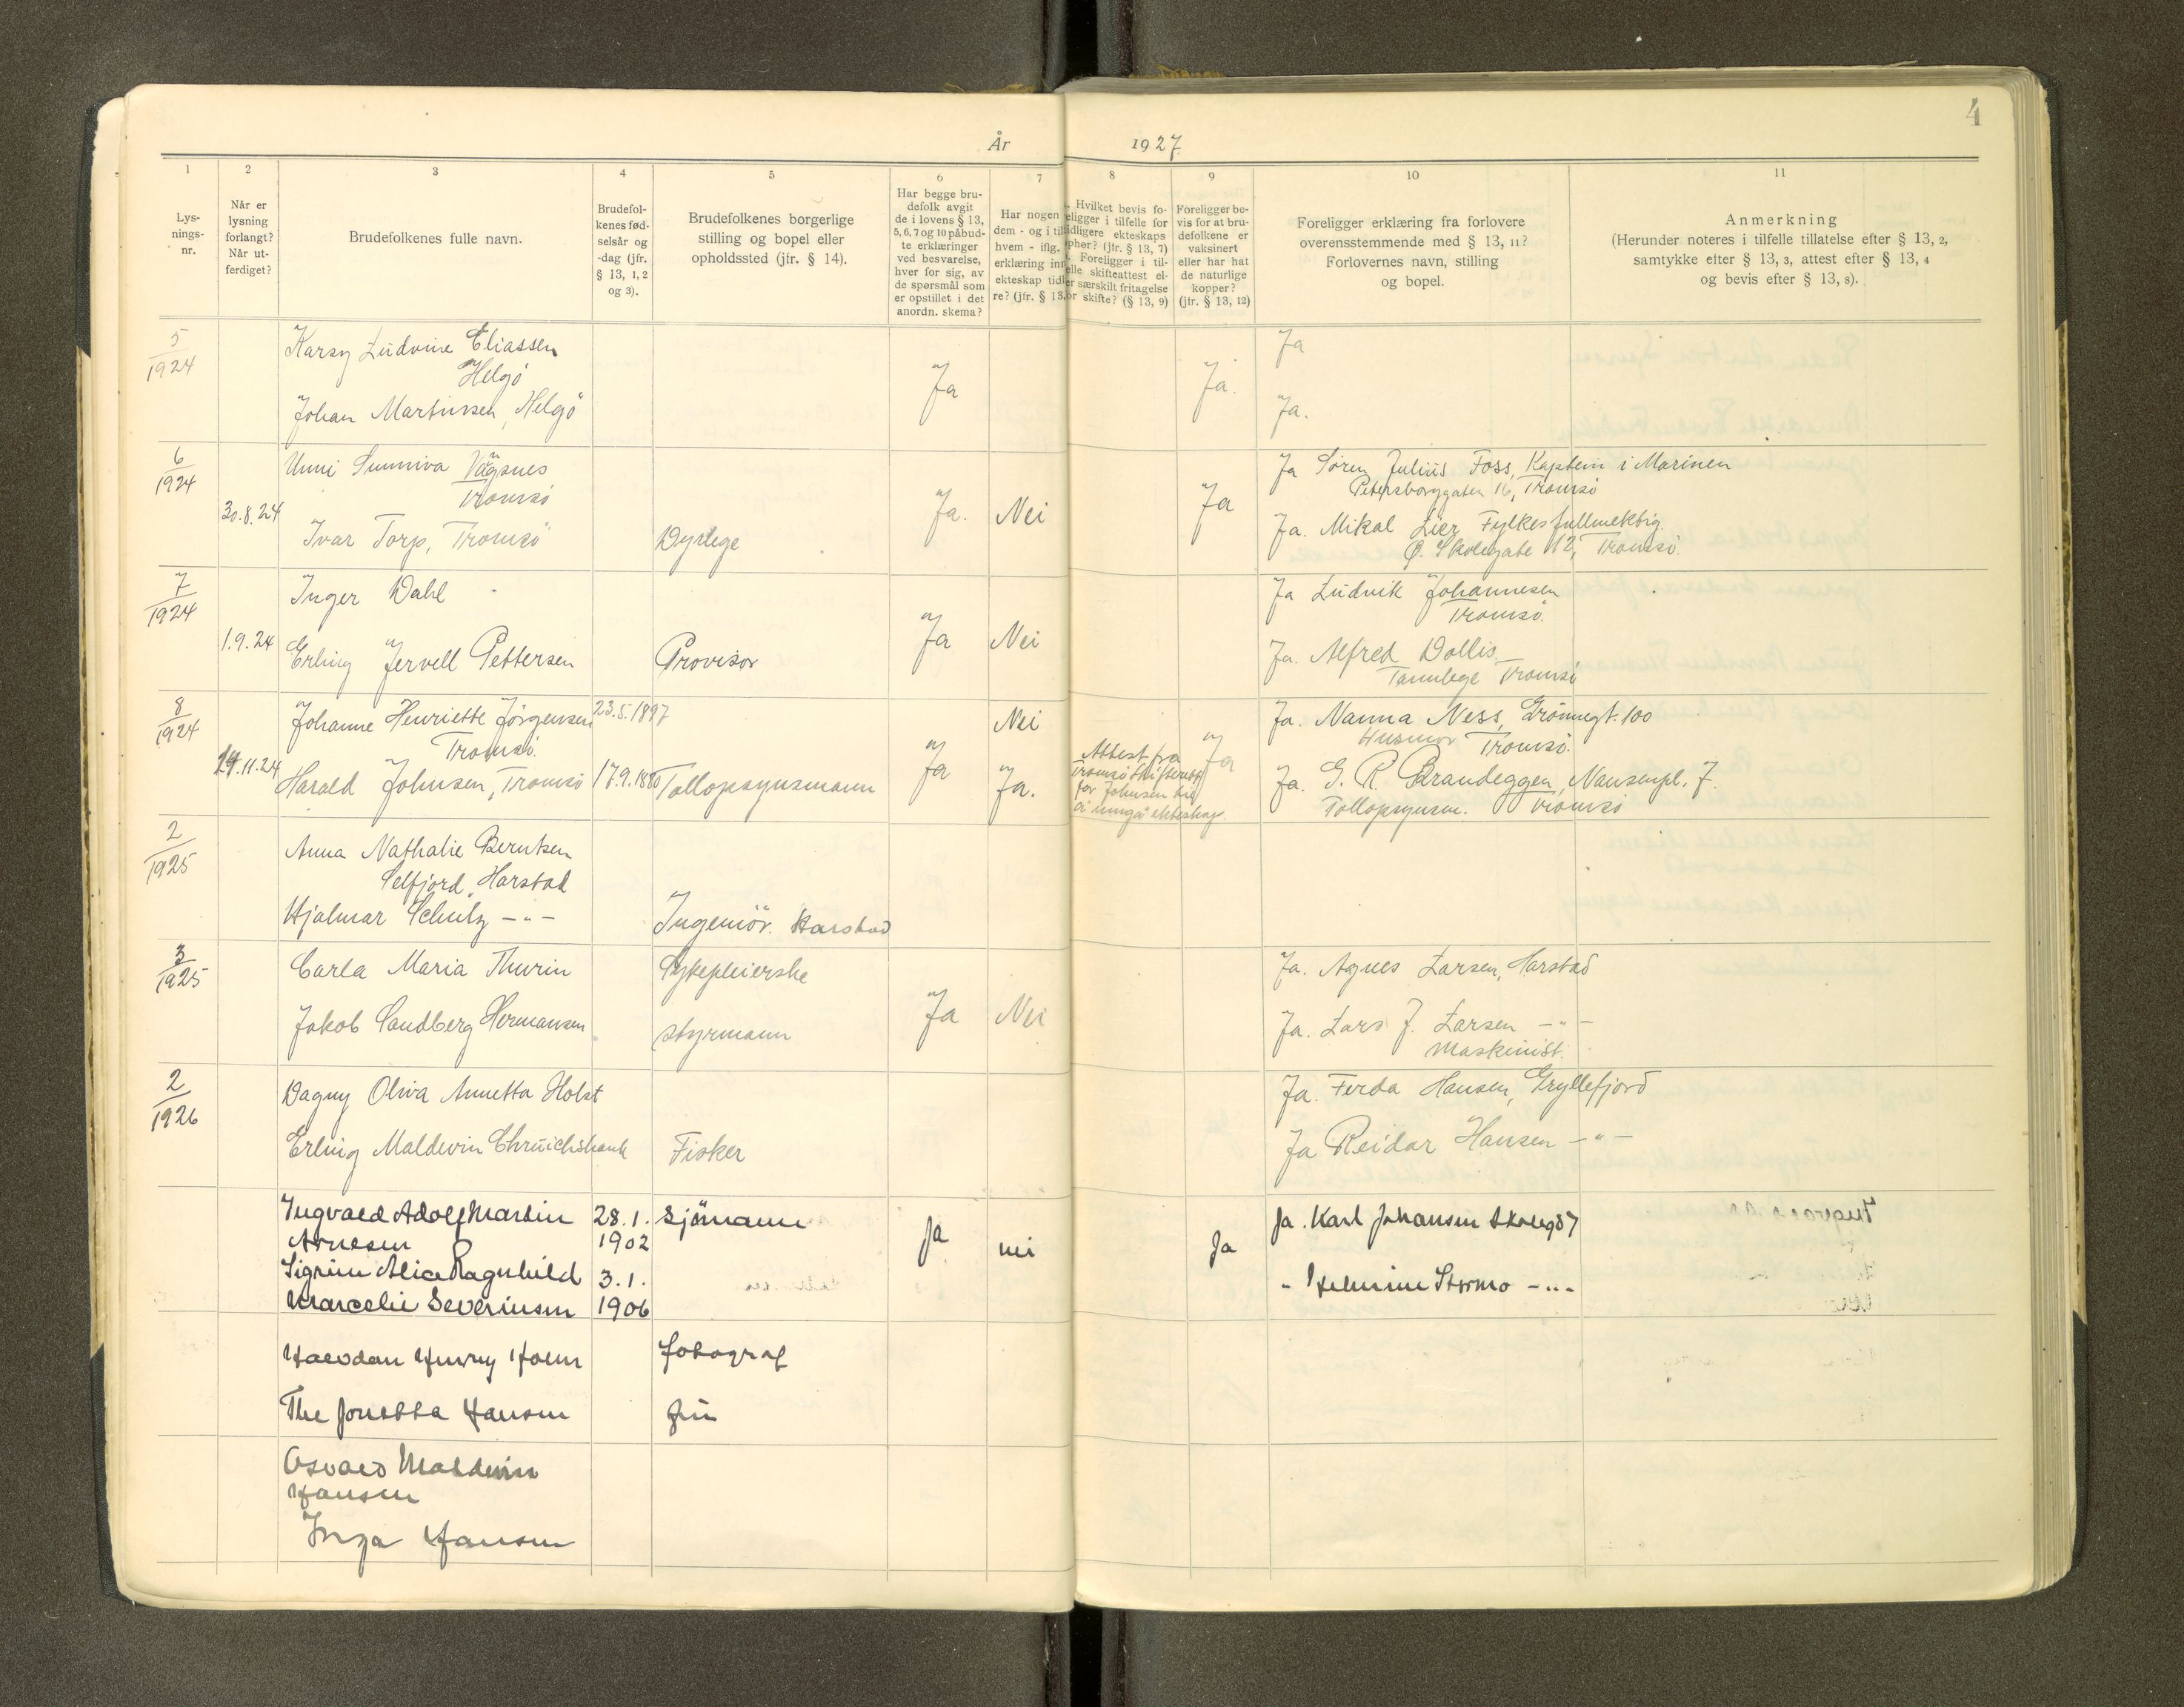 4
År 1927.
1 2 3 4 5 6 7 8 9 10 11
Lys-
nings-
nr.
Når er
lysning
forlangt?
Når ut-
ferdiget?
Brudefolkenes fulle navn.
Brudefol-
kenes fød-
selsår og
-dag (jfr.
§ 13, 1, 2
og 3).
Brudefolkenes borgerlige
stilling og bopel eller
opholdssted (jfr. § 14).
Har begge bru-
defolk avgit
de i lovens § 13,
5, 6, 7 og 10 påbud-
te erklæringer
ved besvarelse,
hver for sig, av
de spørsmål som
er opstillet i det
anordn. skema?
Har nogen
dem - og i til
hvem - iflg.
erklæring inn
ekteskap tidl
re? (jfr. § 13,
Hvilket bevis fo-
religger i tilfelle for
tidligere ekteskaps
opher? (jfr. § 13, 7)
Foreligger i til-
elle skifteattest el-
er særskilt fritagelse
or skifte? (§ 13, 9)
Foreligger be-
vis for at bru-
defolkene er
vaksinert
eller har hat
de naturlige
kopper?
(jfr. § 13, 12)
Foreligger erklæring fra forlovere
overensstemmende med § 13, 11?
Forlovernes navn, stilling
og bopel.
Anmerkning
(Herunder noteres i tilfelle tillatelse efter § 13, 2,
samtykke efter § 13, 3, attest efter § 13, 4
og bevis efter § 13, 8).
5
1924
Karsy Ludvine Eliassen
Helgö
Johan Martinssen, Helgö
Ja
Ja.
Ja
Ja.
6
1924
30.8.24
Unni Sunniva Vågsnes
Tromsö
Ivar Torp, Tromsö
Dyrlege
Ja.
Nei
Ja
Ja Sören Julius Foss, Kaptein i Marinen
Petersborggaten 16, Tromsö
Ja. Mikal Lier, Fylkesfullmektig.
Ø. Skolegate 12, Tromsö.
7
1924
1.9.24
Inger Dahl
Erling Jervell Pettersen
Provisor
Ja
Nei
Ja Ludvik Johannesen
Tromsö.
Ja. Alfred Dollis
Tannlege Tromsö
8
1924
24.11.24
Johanne Henriette Jörgensen
Tromsö.
Harald Johnsen, Tromsö
23.5.1897
17.9.1880
Tollopsynsmann
Ja
Nei
Ja.
Attest fra
Tromsö Skifterett
for Johnsen
inngå ekteskap.
Ja
Ja. Nanna Ness, Grönnegt. 100
Husmor Tromsö.
Ja. G. R. Brandeggen, Nansenpl. 7.
Tollopsynsm. Tromsö
2
1925
Anna Nathalie Berntsen
Selfjord, Harstad
Hjalmar Schulz -"-
Ingeniör. Harstad
3
1925
Carla Maria Thurin
Jakob Sandberg Hermansen
Sykepleierske
Styrmann
Ja
Nei
Ja. Agnes Larsen, Harstad
Ja. Lars J. Larsen -"-
Maskinist.
2
1926
Dagny Oliva Annetta Holst
Erling Maldevin Chruickshank
Fisker
Ja. Ferda Hansen, Gryllefjord
Ja Reidar Hansen -"-
Ingvald Adolf Martin
Arnesen
Sigrun Alice Ragnhild
Marcelie Severinsen
28.1.
1902
3.1.
1906
Sjömann
Ja
nei
Ja
Ja. Karl Johansen
- Helmine Stormo -"-
Halvdan Henry Holm
The Jonetta Hansen
fotograf
frü
Osvald Maldevin
Hansen
Inga Hansen